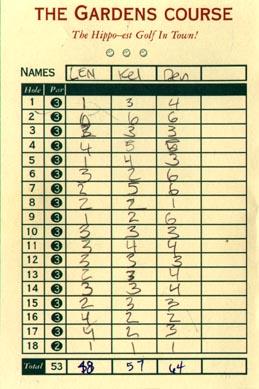 THE GARDENS COURSE
The Hippo-est Golf In Town!
NAMES LEN Kel Den
Hole Par
1 3 1 3 4
2 3 6 6 6
3 3 3 3 3
4 3 4 5
5 3 1 4 3
6 3 3 2 6
7 3 2 5 6
8 3 2 2 1
9 3 1 2 6
10 3 3 3 3
11 3 3 4 4
12 3 3 3 3
13 3 2 3 4
14 3 3 3 4
15 3 2 3 3
16 3 4 2 2
17 3 4 2 3
18 2 1 1 1
Total 53 48 57 64